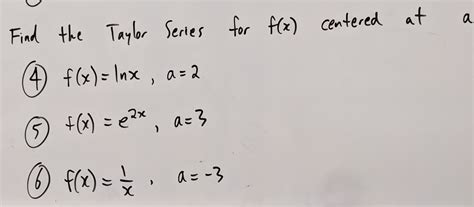 Find the Taylor Series for f(x) centered at a
④ f(x) = ln x , a = 2
⑤ f(x) = e^{2x} , a = 3
⑥ f(x) = \frac{1}{x} , a = -3